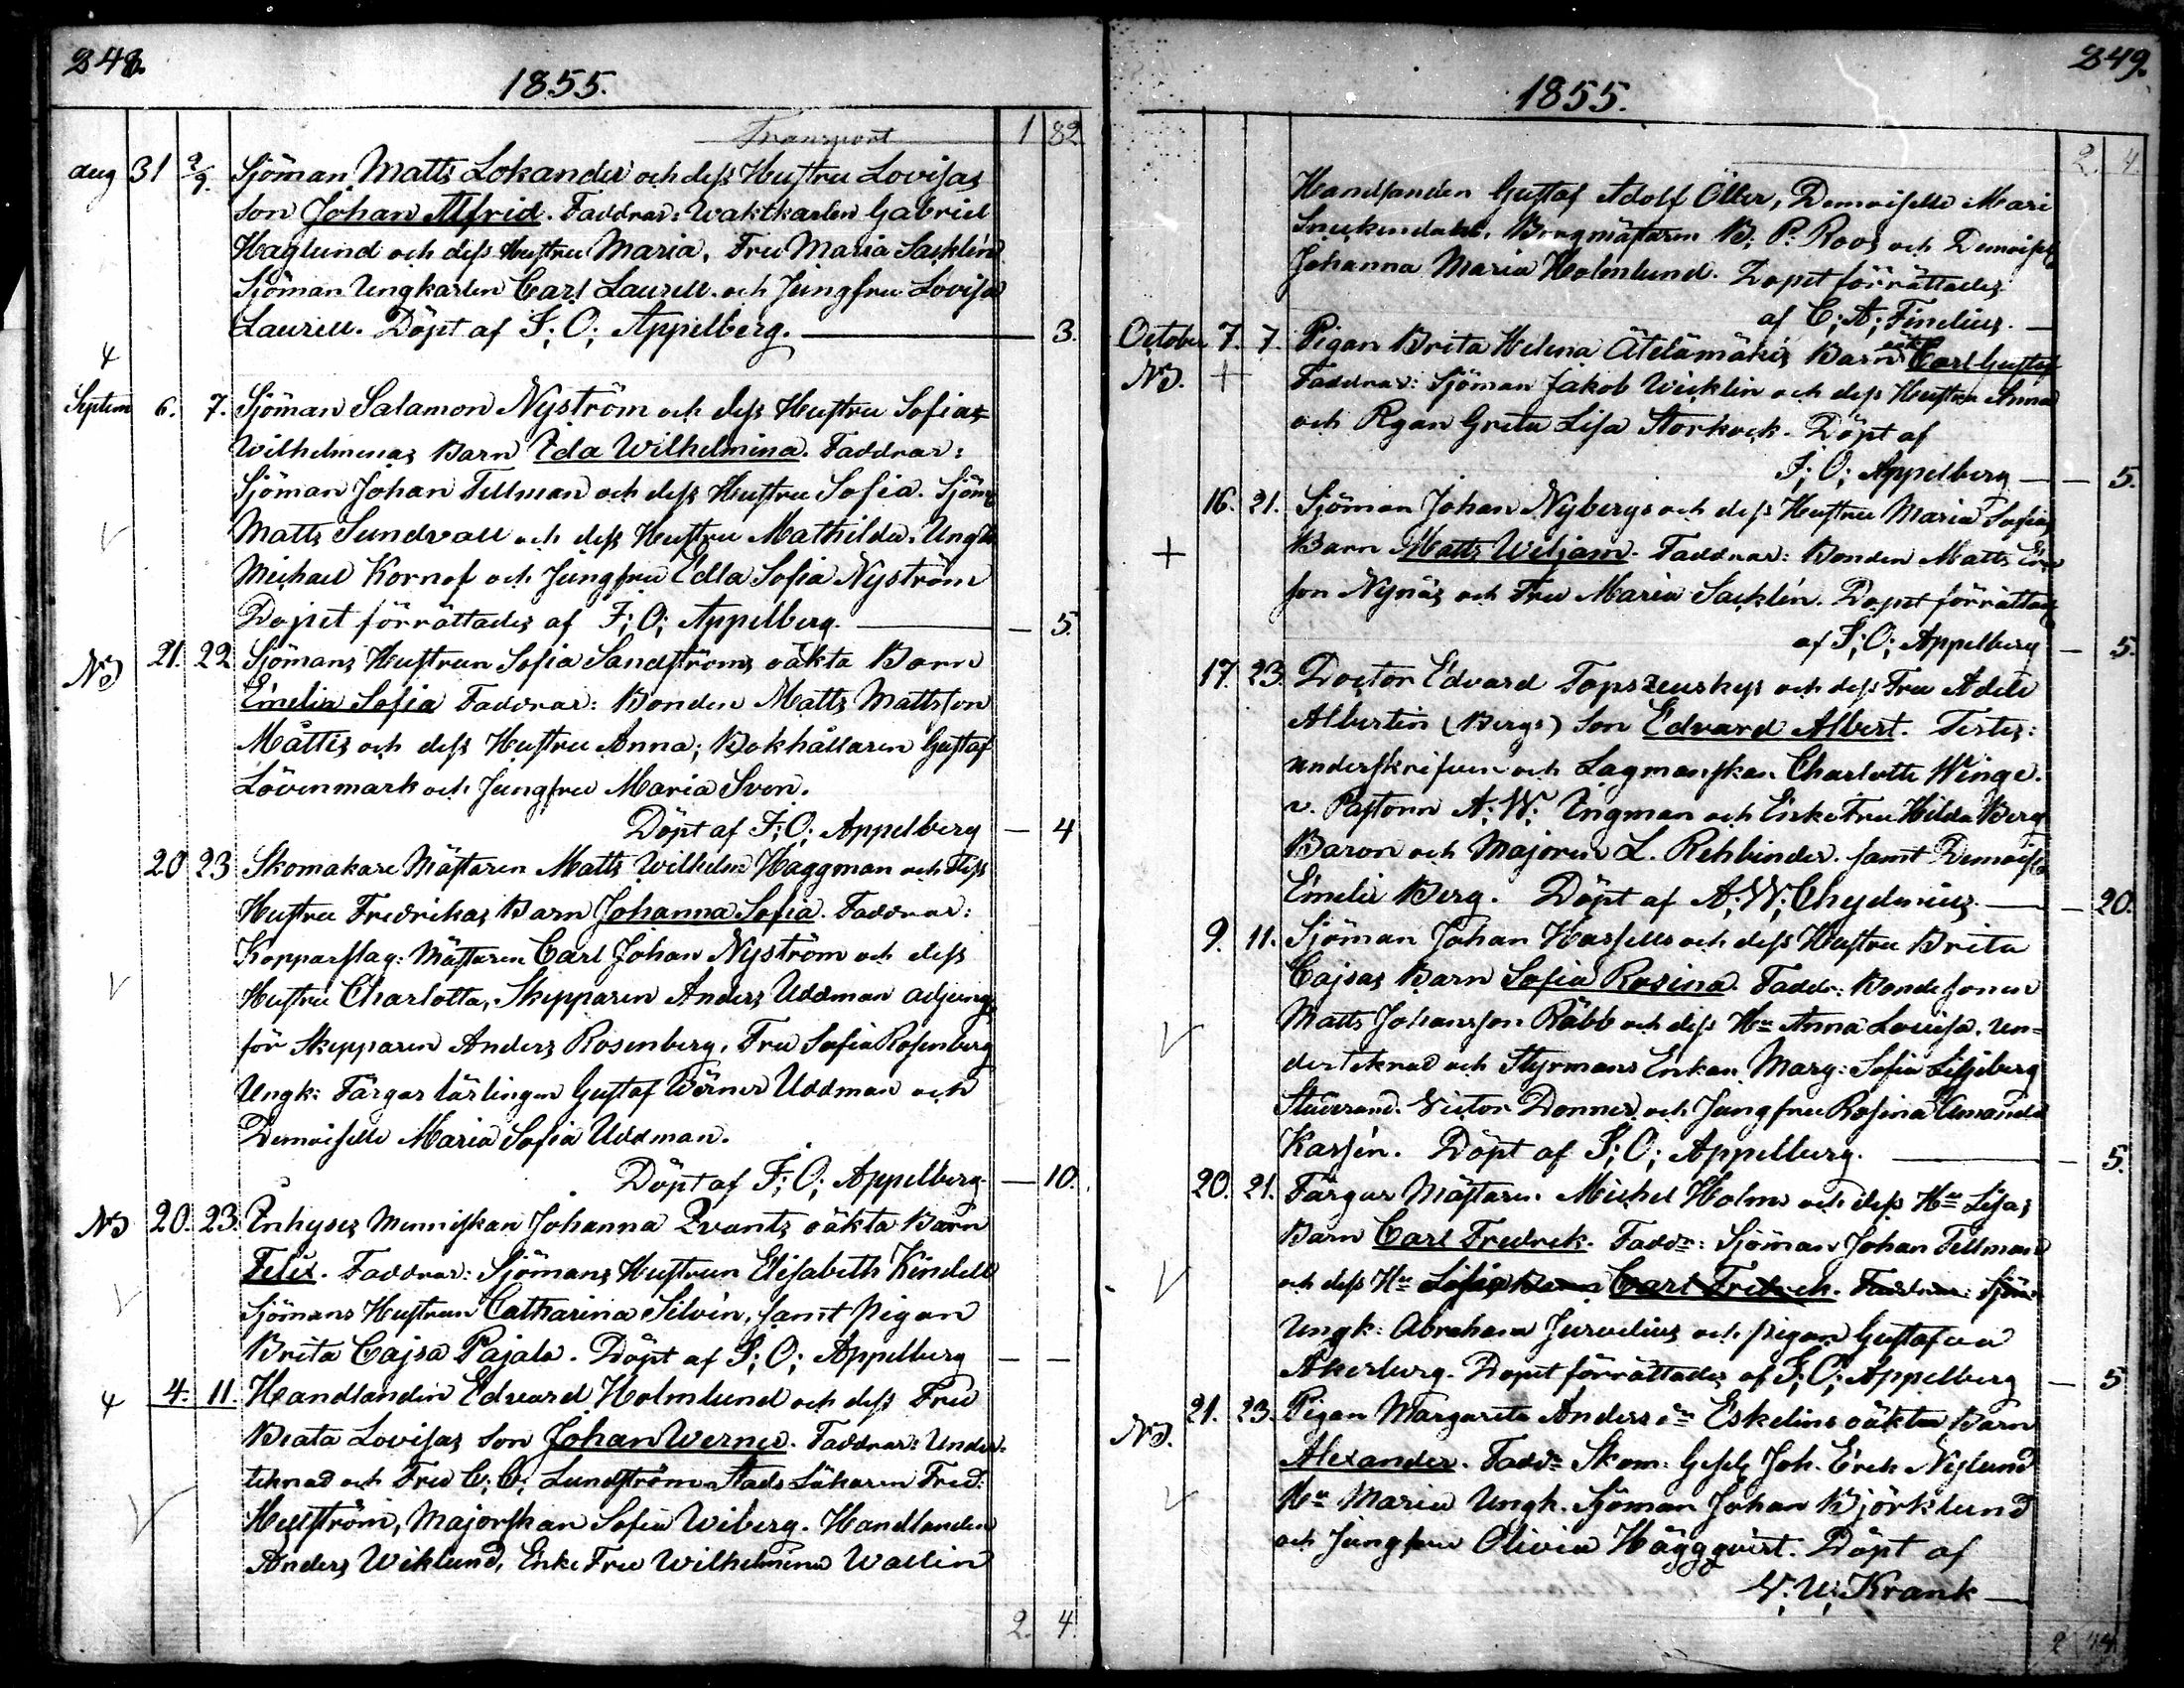 248.
1855.
Transport 1 82
aug 31 2/9. Sjöman Matts Lokander och dess Hustru Lovisas
son Johan Alfrid. Faddrar: Waktkarlen Gabriel
Haglund och dess Hustru Maria, Fru Maria Sacklén
Sjöman Ungkarlen Carl Laurell och Jungfru Lovisa
Laurell. Döpt af F; O; Appelberg. 3.
Septem 6. 7. Sjöman Salamon Nyström och dess Hustru Sofias
Wilhelminas Barn Ida Wilhelmina. Faddrar:
Sjöman Johan Tellman och dess Hustru Sofia. Sjöm:
Matts Sundvall och dess Hustru Mathilda. Ungk:
Michael Kornof och Jungfru Edla Sofia Nyström
Dopet förrättades af F; O; Appelberg. — 5.
No 21. 22 Sjömans Hustrun Sofia Sandströms oäkta Barn
Emelia Sofia Faddrar: Bonden Matts Mattsson
Måttis och dess Hustru Anna; Bokhållaren Gustaf
Lövenmark och Jungfru Maria Sven.
Döpt af F; O; Appelberg — 4
20 23 Skomakare Mästaren Matts Wilhelm Häggman och dess
Hustru Fredrikas Barn Johanna Sofia. Faddrar:
Kopparslag: Mästaren Carl Johan Nyström och dess
Hustru Charlotta, Skepparen Anders Uddman adjung:
för Skepparen Anders Rosenberg, Fru Sofia Rosenberg
Ungk: Färgar lärlingen Gustaf Werner Uddman och
Demoiselle Maria Sofia Uddman.
Döpt af F; O; Appelberg — 10.
No 20. 23. Inhyses Menniskan Johanna Qvants oäkta Barn
Felix. Faddrar: Sjömans Hustrun Elisabeth Kindell
Sjömans Hustrun Catharina Silvén, samt pigan
Brita Cajsa Pajala. Döpt af F; O; Appelberg — —
4. 11. Handlanden Edvard Holmlund och dess Fru
Beata Lovisas son Johan Werner. Faddrar: Under-
teknad och Fru C; C; Lundström Stads Läkaren Fred:
Hellström, Majorskan Sofia Wiberg. Handlanden
Anders Wiklund, Enke Fru Wilhelmina Wallin
2. 4.
249.
1855.
2. 4.
Handlanden Gustaf Adolf Öller, Demoiselle Mari
Snickendahl, Borgmästaren B; P: Roos och Demoisell
Johanna Maria Holmlund. Dopet förrättades
af C; A; Finelius. —
October 7. 7. Pigan Brita Helena Ätelämäkis Barn Carl Gustaf
No. + Faddrar: Sjöman Jakob Wicklin och dess Hustru Anna
och Pigan Greta Lisa Storkock. Döpt af
F; O; Appelberg — 5.
16. 21. Sjöman Johan Nybergs och dess Hustru Maria Sofias
+ Barn Matts Wiljam. Faddrar: Bonden Matts
son Nynäs och Fru Maria Sacklén. Dopet förrättades
af F; O; Appelberg — 5.
17. 23. Doctor Edvard Topszeuskys och dess Fru Adele
Albertin (Bergs) Son Edvard Albert. Testes:
underskrifven och Lagmanskan Charlotte Winge.
v. Pastorn A: W: Ingman och Enke Fru Hilda Berg
Baron och Majoren L. Rehbinder samt Demoiselle
Emelie Berg. Döpt af A; W; Chydenius. — 20.
9. 11. Sjöman Johan Hassells och dess Hustru Brita
Cajsas Barn Sofia Rosina. Faddr: Bondesonen
Matts Johansson Räbb och dess Hu Anna Lovisa. Un=
derteknad och Styrmans Enkan Marg: Sofia Liljeberg
Studerand: Victor Donner och Jungfru Rosina Amanda
Karsén. Döpt af F; O; Appelberg. — 5.
20. 21. Färgar Mästaren Michel Holms och dess Hu Lisas
Barn Carl Fredrik. Faddr: Sjöman Johan Tellman
och dess Hu Sofia Barn Carl Fredrik. Faddrar: Sjöm:
Ungk: Abraham Jurvelius och pigan Gustafva
Åkerberg. Dopet förrättades af F; O; Appelberg — 5
No. 21. 23. Pigan Margareta Anders dr Eskelins oäkta Barn
Alexander. Faddr Skom: Gesels Joh. Erik Nylund
Hu Maria Ungk. Sjöman Johan Björklund
och Jungfru Olivia Häggqvist. Döpt af
V; U; Krank —
2 44